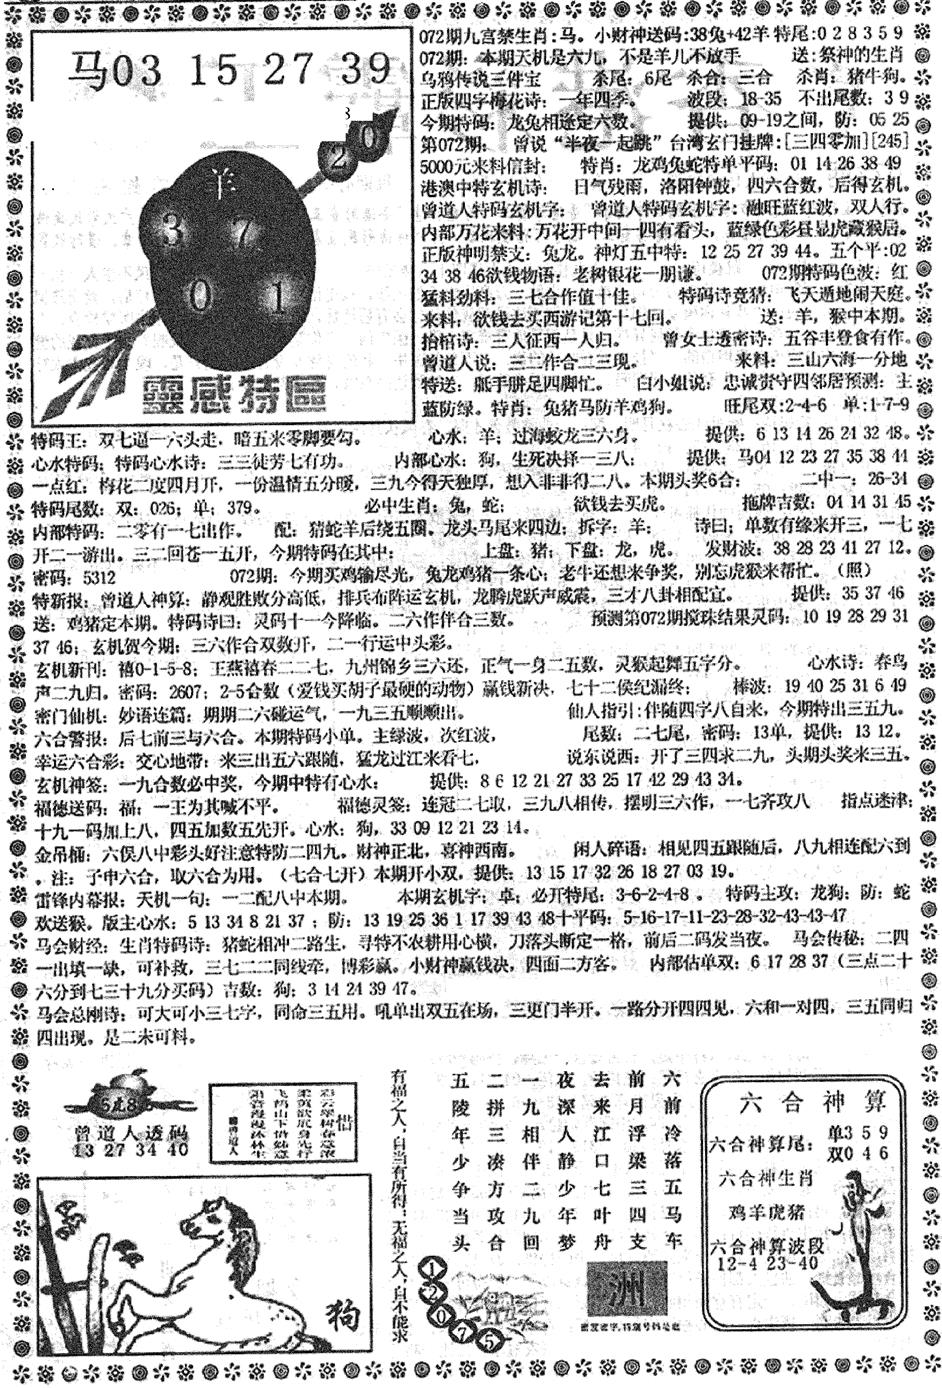 马03 15 27 39
羊
2 0
3 7
0 1
靈感特區
072期九宫禁生肖:马。小财神送码:38兔+42羊 特尾:0 2 8 3 5 9
072期:本期天机是六九，不是羊儿不放手 送:祭神的生肖
乌鸦传说三件宝 杀尾:6尾 杀合:三合 杀肖:猪牛狗。
正版四字梅花诗:一年四季。 波段:18-35 不出尾数:3 9
今期特码:龙兔相逢定六数。 提供:09-19之间，防:05 25
第072期: 曾说“半夜一起跳” 台湾玄门挂牌:[三四零加][245]
5000元来料信封: 特肖:龙鸡兔蛇特单平码:01 14 26 38 49
港澳中特玄机诗: 日气残雨，洛阳钟鼓，四六合数，后得玄机。
曾道人特码玄机字: 曾道人特码玄机字:融旺蓝红波，双人行。
内部万花来料:万花开中间一四有看头，蓝绿色彩昼显虎藏猴居。
正版神明禁文:兔龙。神灯五中特:12 25 27 39 44。五个平:02
34 38 46欲钱物语:老树银花一朋谦。 072期特码色波:红
猛料劲料:三七合作值十佳。 特码诗竞猜:飞天遁地闹天庭。
来料:欲钱去买西游记第十七回。 送:羊，猴中本期。
抬棺诗:三人征西一人归。 曾女士透密诗:五谷丰登食有作。
曾道人说:三二作合二三现。 来料:三山六海一分地
特送:胝手胼足四脚忙。 白小姐说:忠诚责守四邻居预测:主
蓝防绿。特肖:兔猪马防羊鸡狗。 旺尾双:2-4-6 单:1-7-9
特码王:双七逼一六头走，暗五米零脚要勾。 心水:羊:过海蛟龙三六身。 提供:6 13 14 26 24 32 48。
心水特码:特码心水诗:三三徒劳七有功。 内部心水:狗，生死决择一三八: 提供:马04 12 23 27 35 38 44
一点红:梅花二度四月开，一份温情五分暖，三九今得天独厚，想入非非得二八。本期头奖6合: 二中一:26-34
特码尾数:双:026;单:379。 必中生肖:兔，蛇: 欲钱去买虎。 拖牌吉数:04 14 31 45
内部特码:二零有一七出作。 配:猪蛇羊后绕五圈。龙头马尾来四边:拆字:羊: 诗曰:单数有缘来开三，一七
开二一游出。三二回苍一五开，今期特码在其中: 上盘:猪:下盘:龙，虎。 发财波:38 28 23 41 27 12。
密码:5312 072期:今期买鸡输尽光，兔龙鸡猪一条心:老牛还想来争奖，别忘虎猴来帮忙。(照)
特新报:曾道人神算:静观胜败分高低，排兵布阵运玄机，龙腾虎跃声威震，三才八卦相配宜。 提供:35 37 46
送:鸡猪定本期。特码诗曰:灵码十一今降临。二六作伴合三数。 预测第072期搅珠结果灵码:10 19 28 29 31
37 46:玄机贺今期:三六作合双数开，二一行运中头彩。
玄机新刊:禧0-1-5-8:王燕禧春二二七，九州锦乡三六还，正气一身二五数，灵猴起舞五字分。 心水诗:春鸟
声二九归。密码:2607:2-5合数(爱钱买胡子最硬的动物)赢钱新决，七十二侯纪漏终: 棒波:19 40 25 31 6 49
密门仙机:妙语连篇:期期二六碰运气，一九三五顺顺出。 仙人指引:伴随四字八自来，今期特出三五九。
六合警报:后七前三与六合。本期特码小单。主绿波，次红波， 尾数:二七尾，密码:13单，提供:13 12。
幸运六合彩:交心地带:来三出五六跟随，猛龙过江来看七， 说东说西:开了三四求二九，头期头奖来三五。
玄机神签:一九合数必中奖，今期中特有心水: 提供:8 6 12 21 27 33 25 17 42 29 43 34。
福德送码:福:一王为其喊不平。 福德灵签:连冠二七取，三九八相传，摆明三六作，一七齐攻八 指点迷津:
十九一码加上八，四五加数五先开。心水:狗，33 09 12 21 23 14。
金吊桶:六俣八中彩头好注意特防二四九。财神正北，喜神西南。 闲人碎语:相见四五跟随后，八九相连配六到
。注:子申六合，取六合为用。(七合七开)本期开小双。提供:13 15 17 32 26 18 27 03 19。
雷锋内幕报:天机一句:一二配八中本期。 本期玄机字:卓:必开特尾:3-6-2-4-8 。 特码主攻:龙狗:防:蛇
欢送猴。版主心水:5 13 34 8 21 37 ;防:13 19 25 36 1 17 39 43 48十平码:5-16-17-11-23-28-32-43-43-47
马会财经:生肖特码诗:猪蛇相冲二路生，寻特不农耕用心横，刀落头断定一格，前后二码发当夜。 马会传秘:二四
一出填一缺，可补救，三七二二同线牵，博彩赢。小财神赢钱决，四面二方客。 内部估单双:6 17 28 37(三点二十
六分到七三十九分买码)吉数:狗:3 14 24 39 47。
马会总刚诗:可大可小三七字，同命三五用。吼单出双五在场，三更门半开。一路分开四四见，六和一对四，三五同归
四出现。是二未可料。
曾道人透码
13 27 34 40
狗
有福之人，自当有所得:无福之人，自不能求
六前冷落五马车
前月浮梁三四支
去来江口七叶舟
夜深人静少年梦
一九相伴二九回
二拼三凑方攻合
五陵年少争当头
1 2 0 7 5
洲
六合神算
六合神算尾:单3 5 9
双0 4 6
六合神生肖
鸡羊虎猪
六合神算波段
12-4 23-40